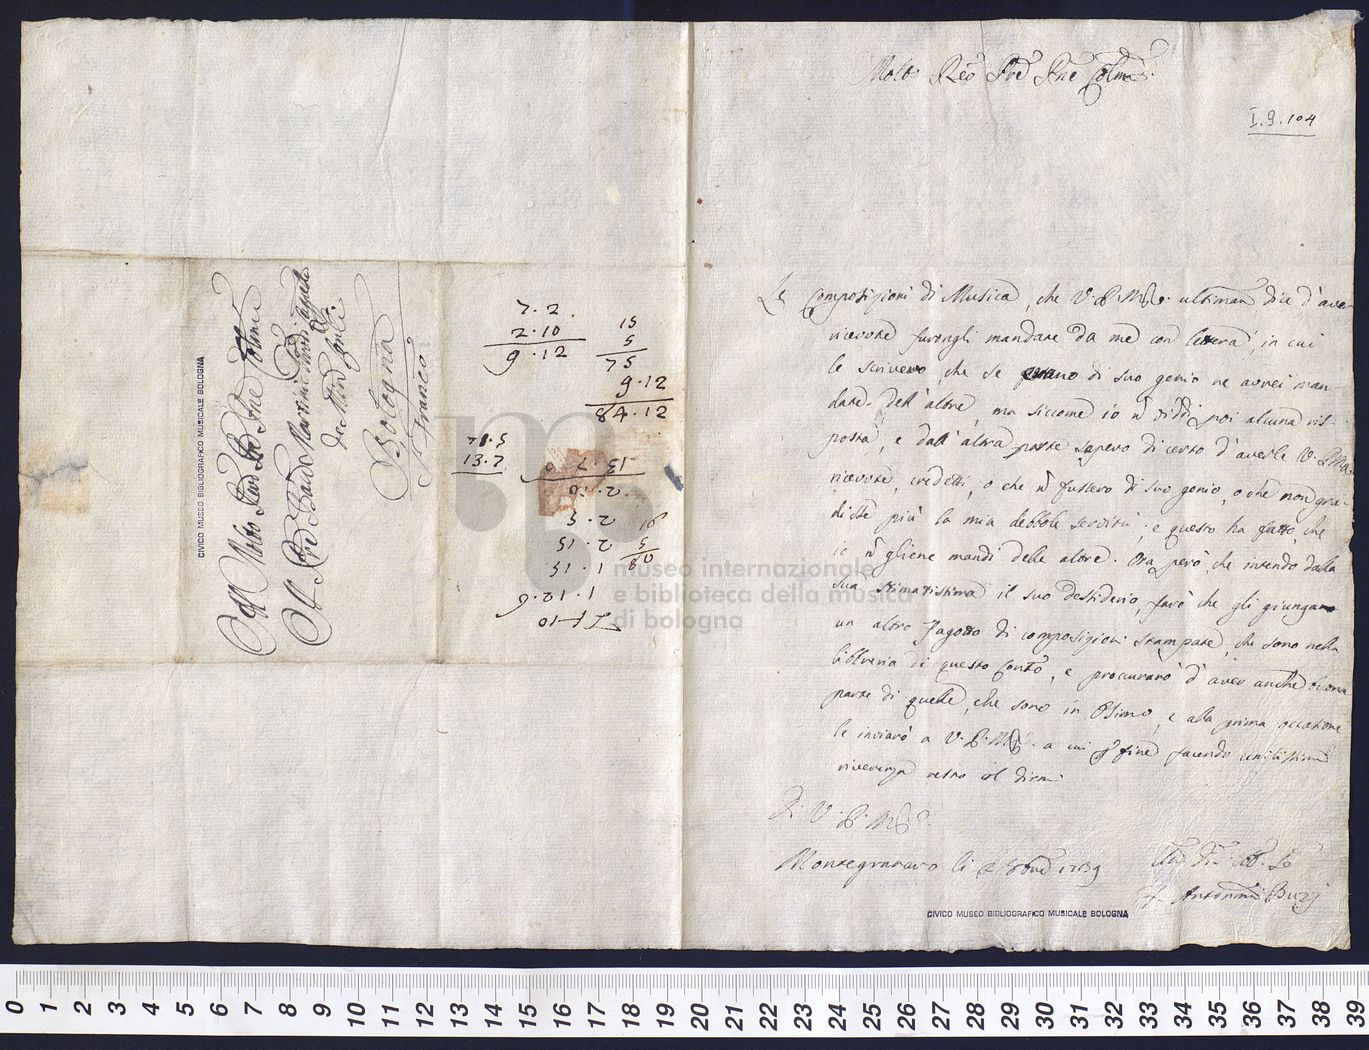 Molto Rẽo Prẽ Prõe Colmõ
I.9.104
Le Composizioni di Musica, che V. P. M. R. ultimam dice d'aver
ricevute furongli mandate da me con lettera, in cui
le scrivevo, che se erano di suo genio ne avrei man-
date dell'altre, ma siccome io ñ viddi poi alcuna ris-
posta, e dall'altra parte sapevo di certo d'averle V. P. M. R.
ricevute, credetti, o che ñ fussero di suo genio, o che non gra-
disse più la mia debbole servitù; e questo ha fatto, che
io ñ gliene mandi delle altre. Ora però, che intendo dalla
sua stimatissima il suo desiderio, farò che gli giungano
un altro fagotto di composizioni stampate, che sono nella
libbreria di questo Conto, e procurarò d'aver anche buona
parte di quelle, che sono in Osimo, e alla prima occasione
le inviarò a V. P. M. R. a cui per fine facendo umilissima
riverenza resto col dirmi
Di V. P. M. R.
Montegranaro li 8bre 1739
F. Antonio Buzj
CIVICO MUSEO BIBLIOGRAFICO MUSICALE BOLOGNA
Al Molto Rev Prẽ Prõe Colmo
Il Prẽ Martini
de Min Conli
Bologna
S. Franco
CIVICO MUSEO BIBLIOGRAFICO MUSICALE BOLOGNA
7.2
2.10
9.12
15
5
75
9.12
84.12
71.5
13.7
13.7
2.10
2.5
2.15
1.15
1.12.6
16
5
80
museo internazionale
e biblioteca della musica
di bologna
0 1 2 3 4 5 6 7 8 9 10 11 12 13 14 15 16 17 18 19 20 21 22 23 24 25 26 27 28 29 30 31 32 33 34 35 36 37 38 39